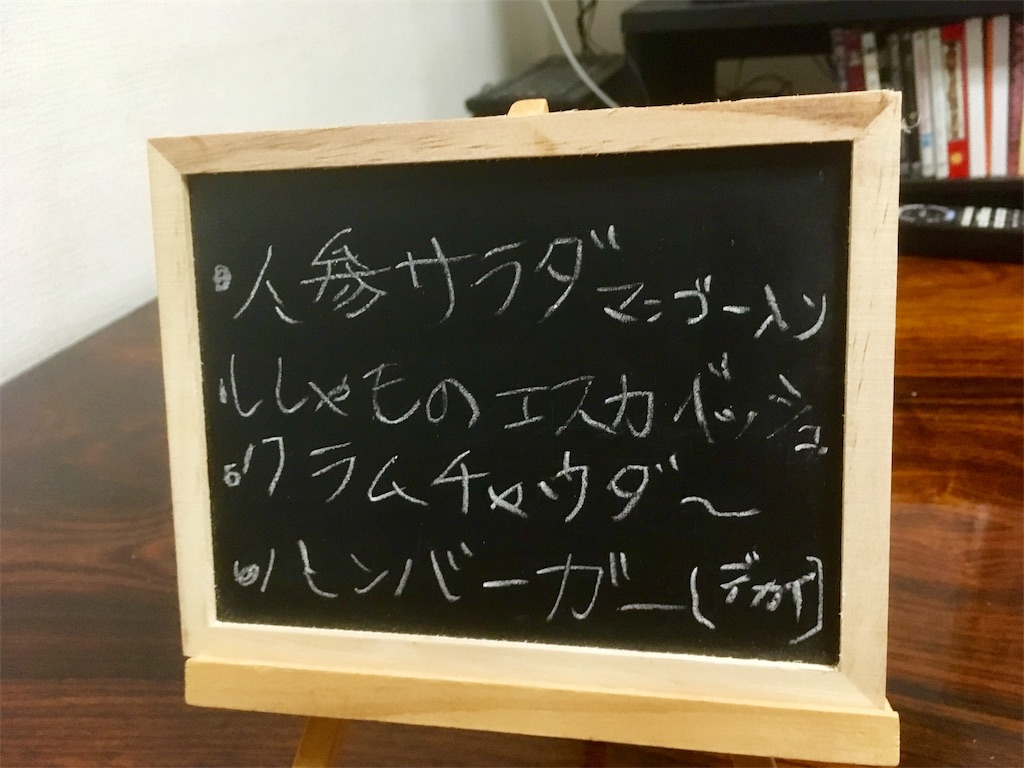 ・人参サラダ マンゴー入り
・ししゃものエスカベッシュ
・クラムチャウダ〜
・ハンバーガー(デカイ]